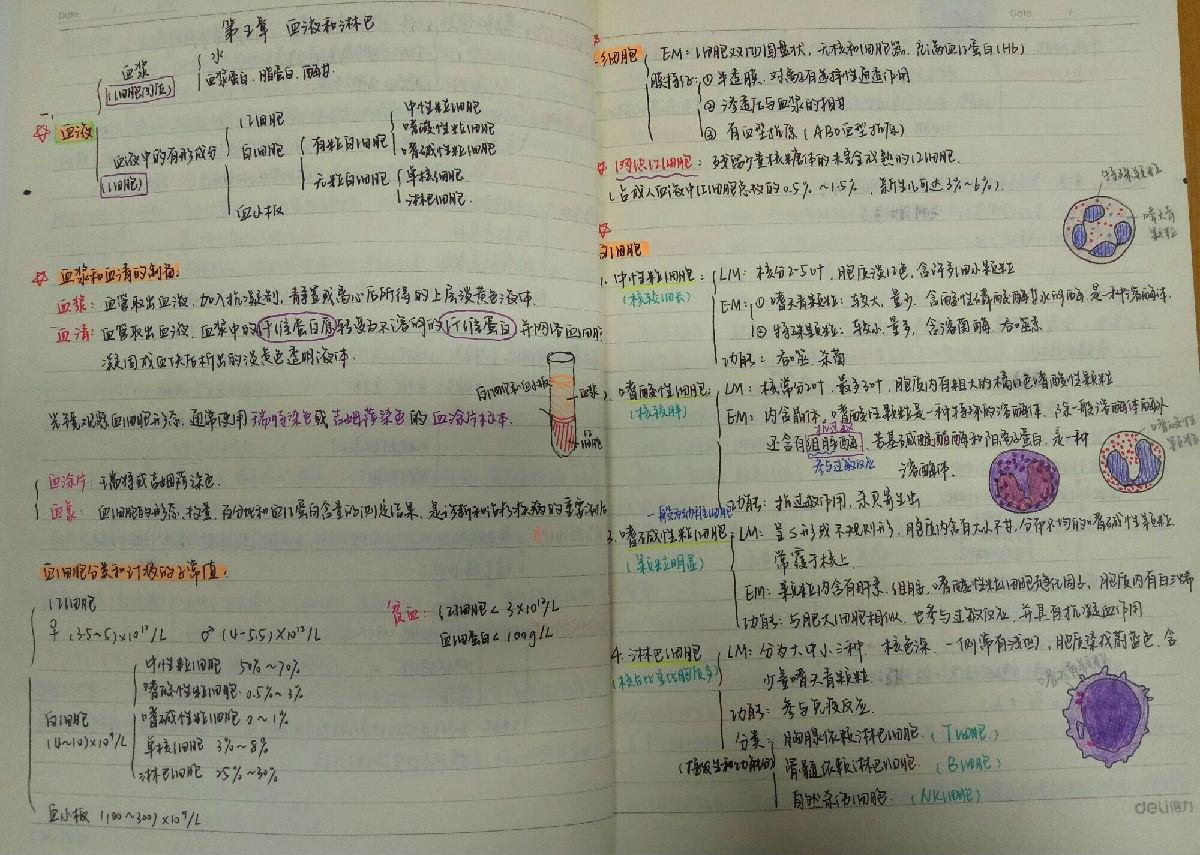 Date. /
第五章 血液和淋巴
血浆
(细胞间质)
水
血浆蛋白、脂蛋白、酶、
一、
☆ 血液
血液中的有形成分
(细胞)
红细胞
白细胞
有粒白细胞
中性粒细胞
嗜酸性粒细胞
嗜碱性粒细胞
无粒白细胞
单核细胞
淋巴细胞
血小板
☆ 血浆和血清的制备:
血浆: 血管取出血液,加入抗凝剂,静置或离心后所得的上层淡黄色液体.
血清: 血管取出血液,血浆中的纤维蛋白原转变为不溶的纤维蛋白并网络血细胞
凝固成血块后析出的淡黄色透明液体.
白细胞和血小板
血浆
红细胞
光镜观察血细胞形态,通常使用瑞特染色或吉姆萨染色的血涂片标本.
血涂片: 瑞特或吉姆萨染色.
血象: 血细胞的形态、数量、百分比和血红蛋白含量的测定结果,是诊断和治疗疾病的重要
血细胞分类和计数的正常值:
红细胞
♀ (3.5~5)×10¹²/L ♂ (4~5.5)×10¹²/L
贫血: 红细胞 < 3×10¹²/L
血红蛋白 < 100g/L
白细胞
(4~10)×10⁹/L
中性粒细胞 50%~70%
嗜酸性粒细胞 0.5%~3%
嗜碱性粒细胞 0~1%
单核细胞 3%~8%
淋巴细胞 25%~30%
血小板 (100~300)×10⁹/L
Date. /
红细胞
EM: 细胞双凹圆盘状,无核和细胞器,充满血红蛋白(Hb)
膜特征: ① 半透膜,对离子有选择性通透作用
② 渗透压与血浆的相当
③ 有血型抗原 (ABO血型抗原)
☆ 网织红细胞: 残留少量核糖体的未完全成熟的红细胞.
(占成人血液中红细胞总数的0.5%~1.5%,新生儿可达3%~6%).
特殊颗粒
嗜天青颗粒
☆
白细胞
1. 中性粒细胞:
(核较细长)
LM: 核分2-5叶,胞质淡红色,含许多细小颗粒
EM: ① 嗜天青颗粒: 较大,量少,含酸性磷酸酶等水解酶,是一种溶酶体.
② 特殊颗粒: 较小,量多,含溶菌酶、吞噬素
功能: 吞噬、杀菌
2. 嗜酸性粒细胞.
(核较胖)
LM: 核常分2叶,最多3叶,胞质内有粗大的橘红色嗜酸性颗粒
EM: 内含晶体,嗜酸性颗粒是一种特殊的溶酶体,除一般溶酶体酶外
抗过敏
还含有组胺酶、芳基硫酸酯酶和阳离子蛋白,是一种
参与过敏反应
溶酶体.
嗜酸性颗粒
功能: 抗过敏作用,杀灭寄生虫
3. 嗜碱性粒细胞
(颗粒明显)
LM: 呈S形或不规则形,胞质内含有大小不等,分布不均的嗜碱性颗粒,
常覆于核上
EM: 颗粒内含有肝素、组胺、嗜酸性粒细胞趋化因子,胞质内有白三烯
功能: 与肥大细胞相似,也参与过敏反应,并具有抗凝血作用
4. 淋巴细胞
(核占比重比胞质多)
LM: 分为大中小三种,核色深,一侧常有浅凹,胞质染成蔚蓝色,含
少量嗜天青颗粒.
嗜天青颗粒
功能: 参与免疫反应.
分类:
胸腺依赖淋巴细胞. (T细胞)
骨髓依赖淋巴细胞. (B细胞)
自然杀伤细胞. (NK细胞)
deli得力